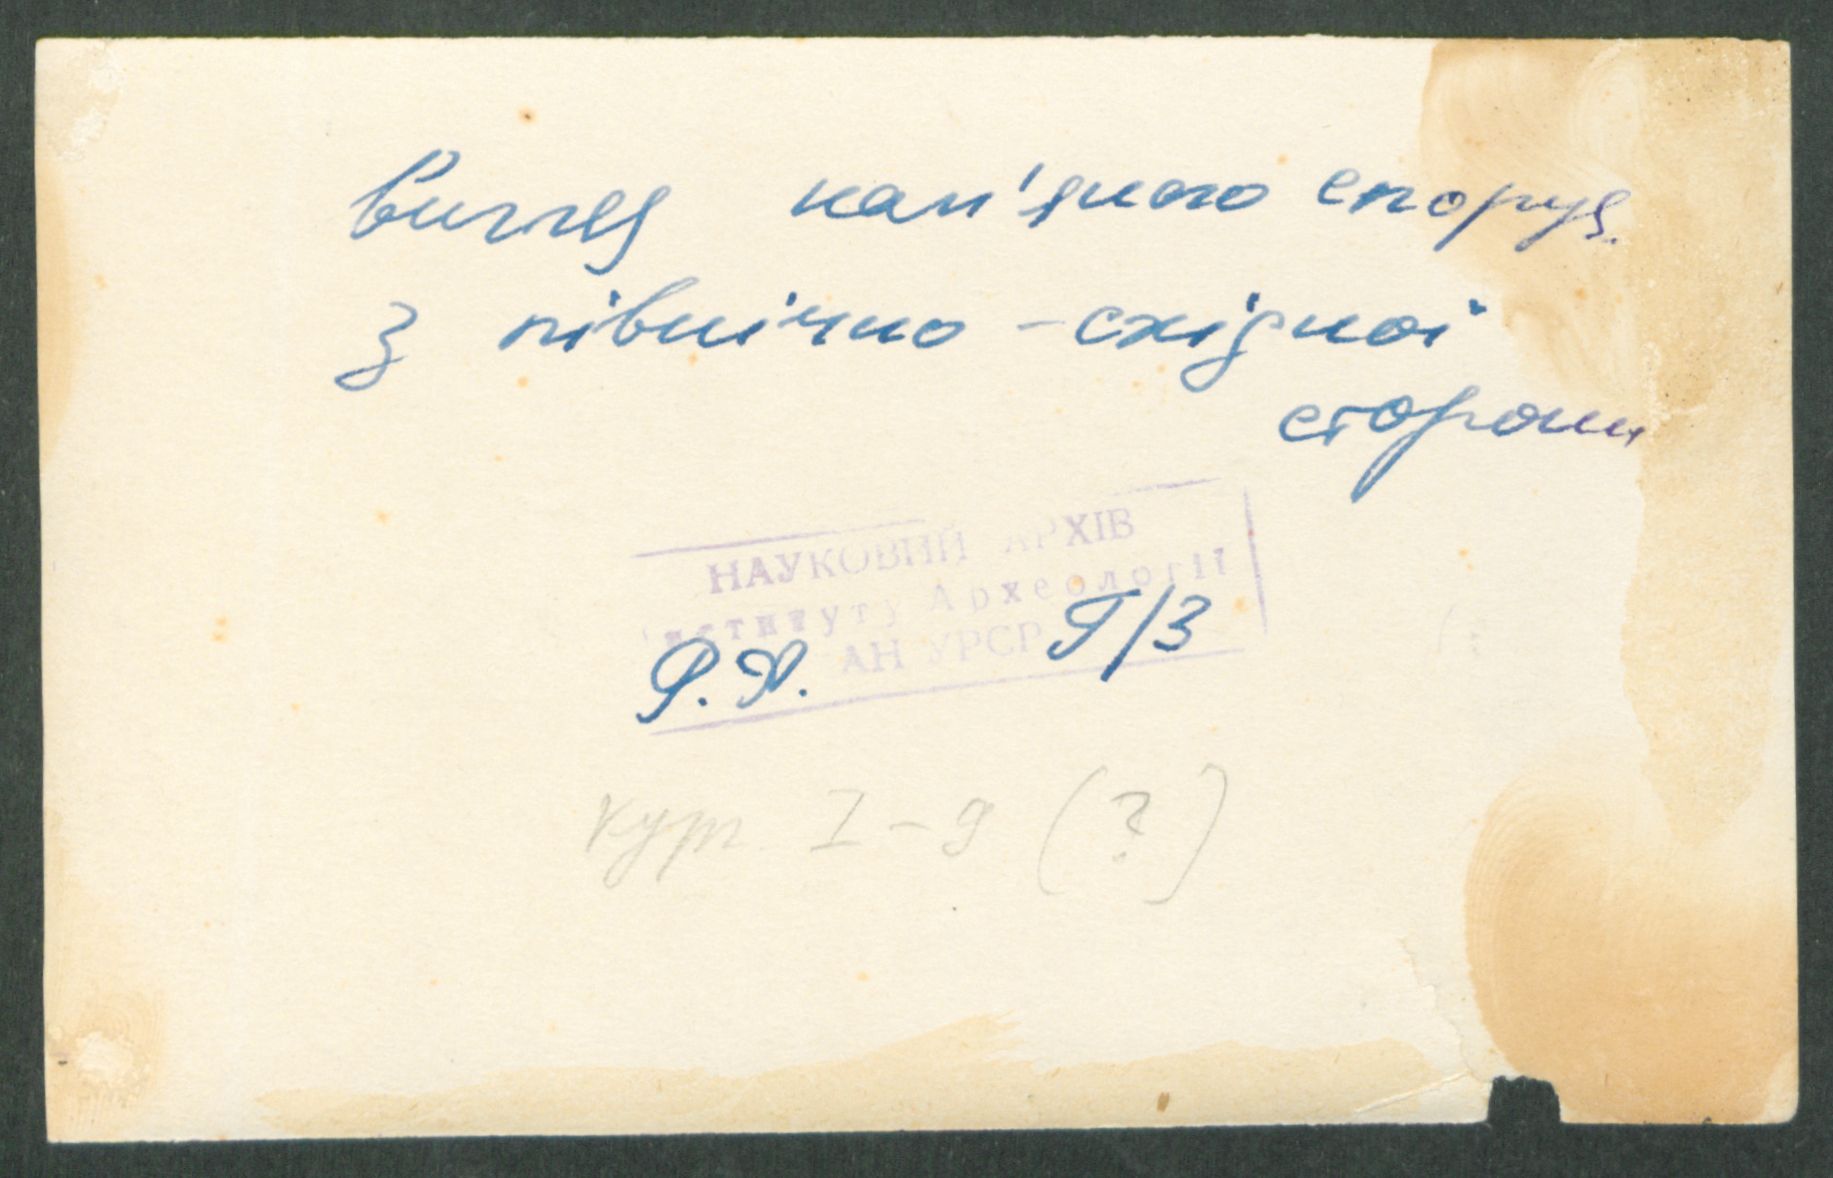 Вигляд кам'яного споруд.
з північно-східної
сторони
НАУКОВИЙ АРХІВ
Інституту Археології
АН УРСР
Р.Я. 9/3
кург. I-9 (?)